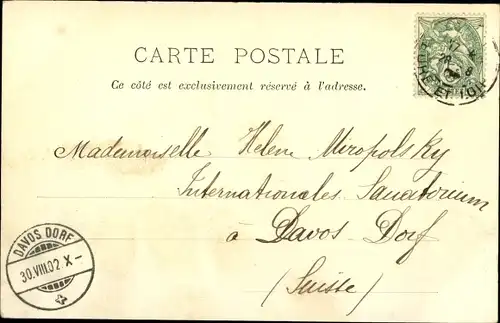 CARTE POSTALE
Ce côté est exclusivement réservé à l'adresse.
INDRE ET LOIRE
Mademoiselle Helene Miropolsky
Internationales Sanatorium
à Davos-Dorf
(Suisse)
DAVOS DORF
30.VIII.02.X-